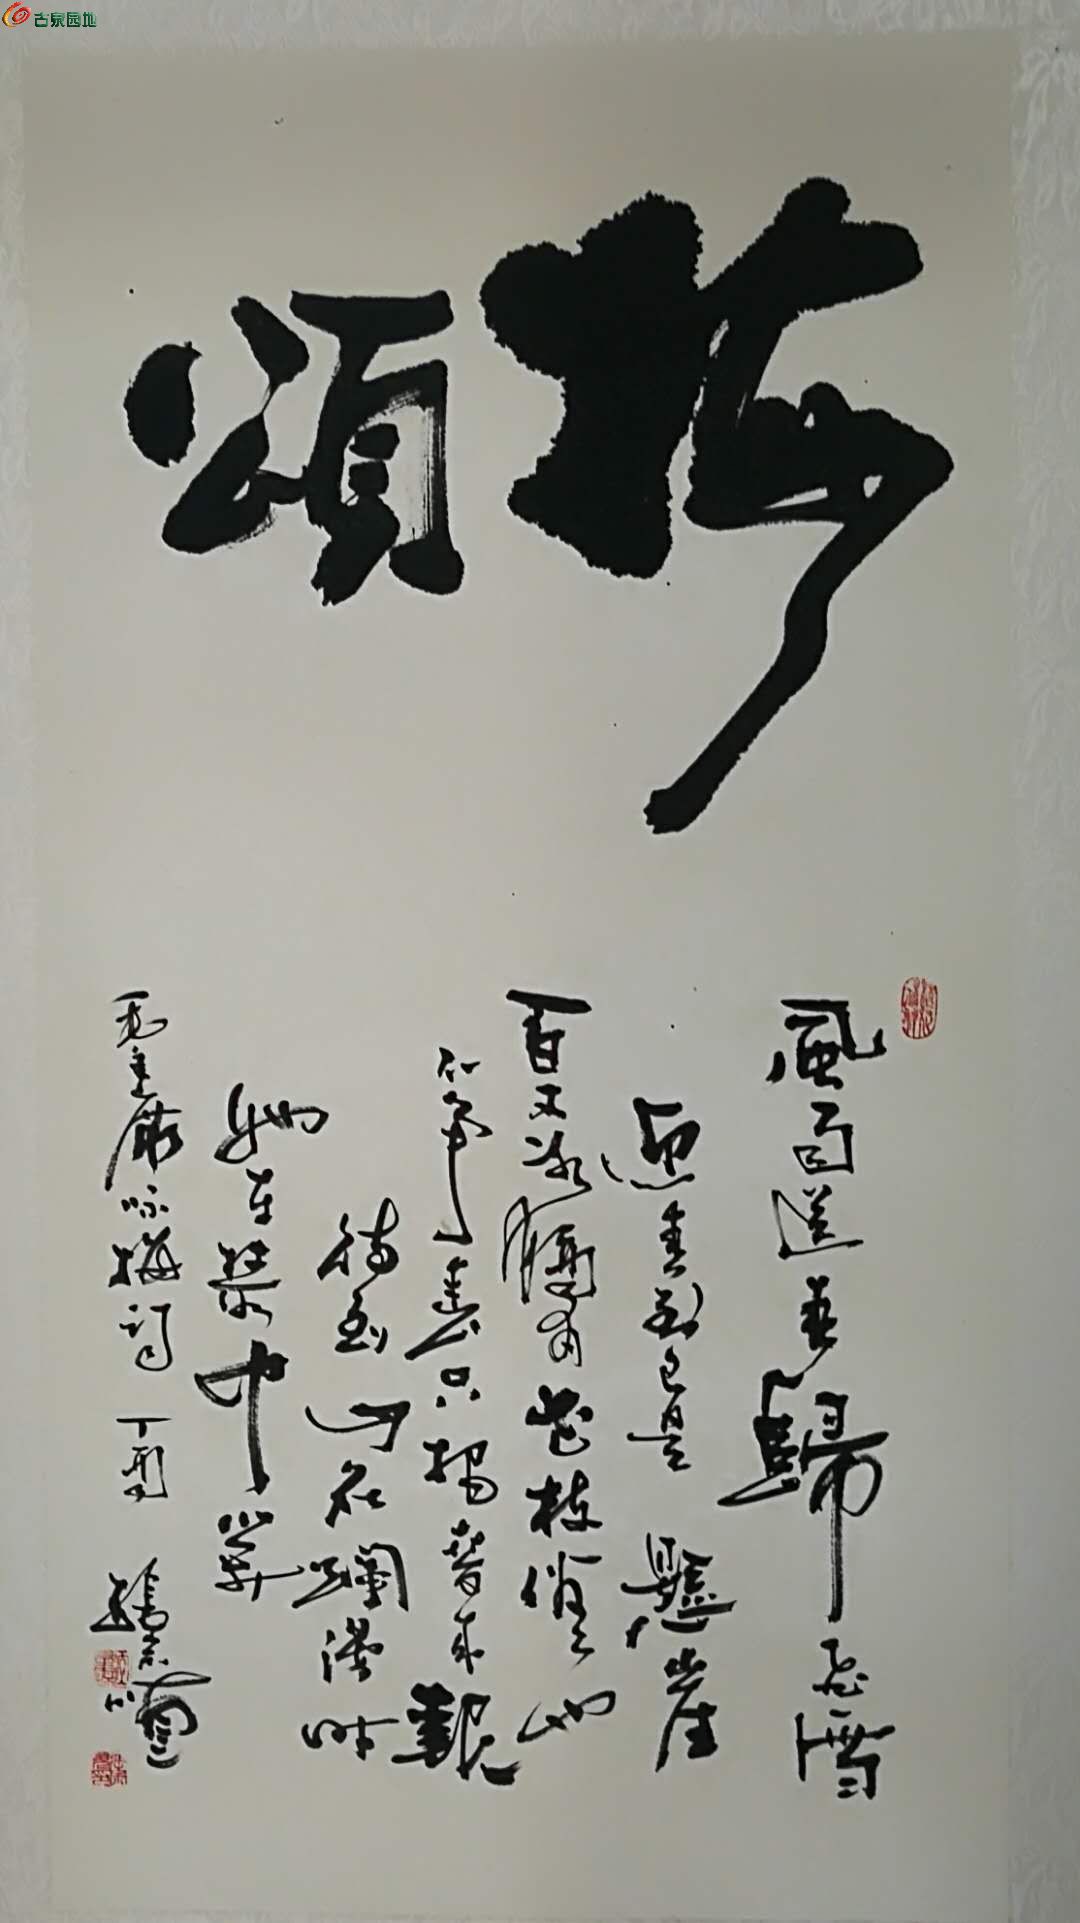 古泉园地
梅頌
風雨送春歸飛雪
迎春到已是懸崖
百丈冰猶有花枝俏々也
不爭春只把春來報
待到山花爛漫時
她在叢中笑
毛主席咏梅詞 丁酉